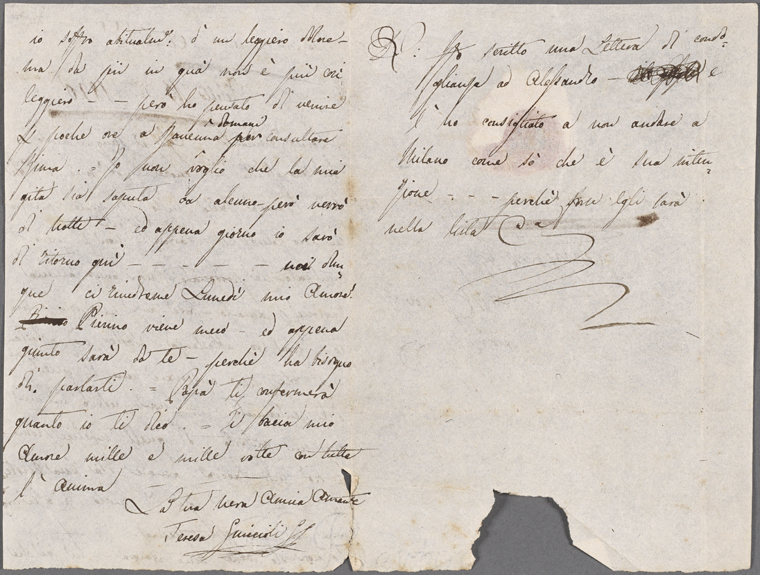 io soffro abitualm: d' un leggiero More=
ma da piu in quà non è più cosi
leggiero - - però ho pensato di venire
p poche ore a Ravenna domani per consultare
Rima. Io non voglio che la mia
gita sia saputa da alcuno - però verrò
di notte - ed appena giorno io sarò
di ritorno quì - - - - - noi dun=
que ci rivedremo Lunedì mio Amore!
Pierino viene meco - ed appena
giunto sarà da te - perchè ha bisogno
di parlarti. = Papà ti confermerà
quanto io te dico. = Ti bacia mio
Amore mille e mille volte con tutta
l' anima
La tua vera Amica Amante
Teresa Guiccioli
Ho scritto una Lettera di condo=
glianza ad Alessandro - e
l' ho consigliato a non andare a
Milano come sò che è sua inten=
zione - - - perchè forse Egli sarà
nella lista